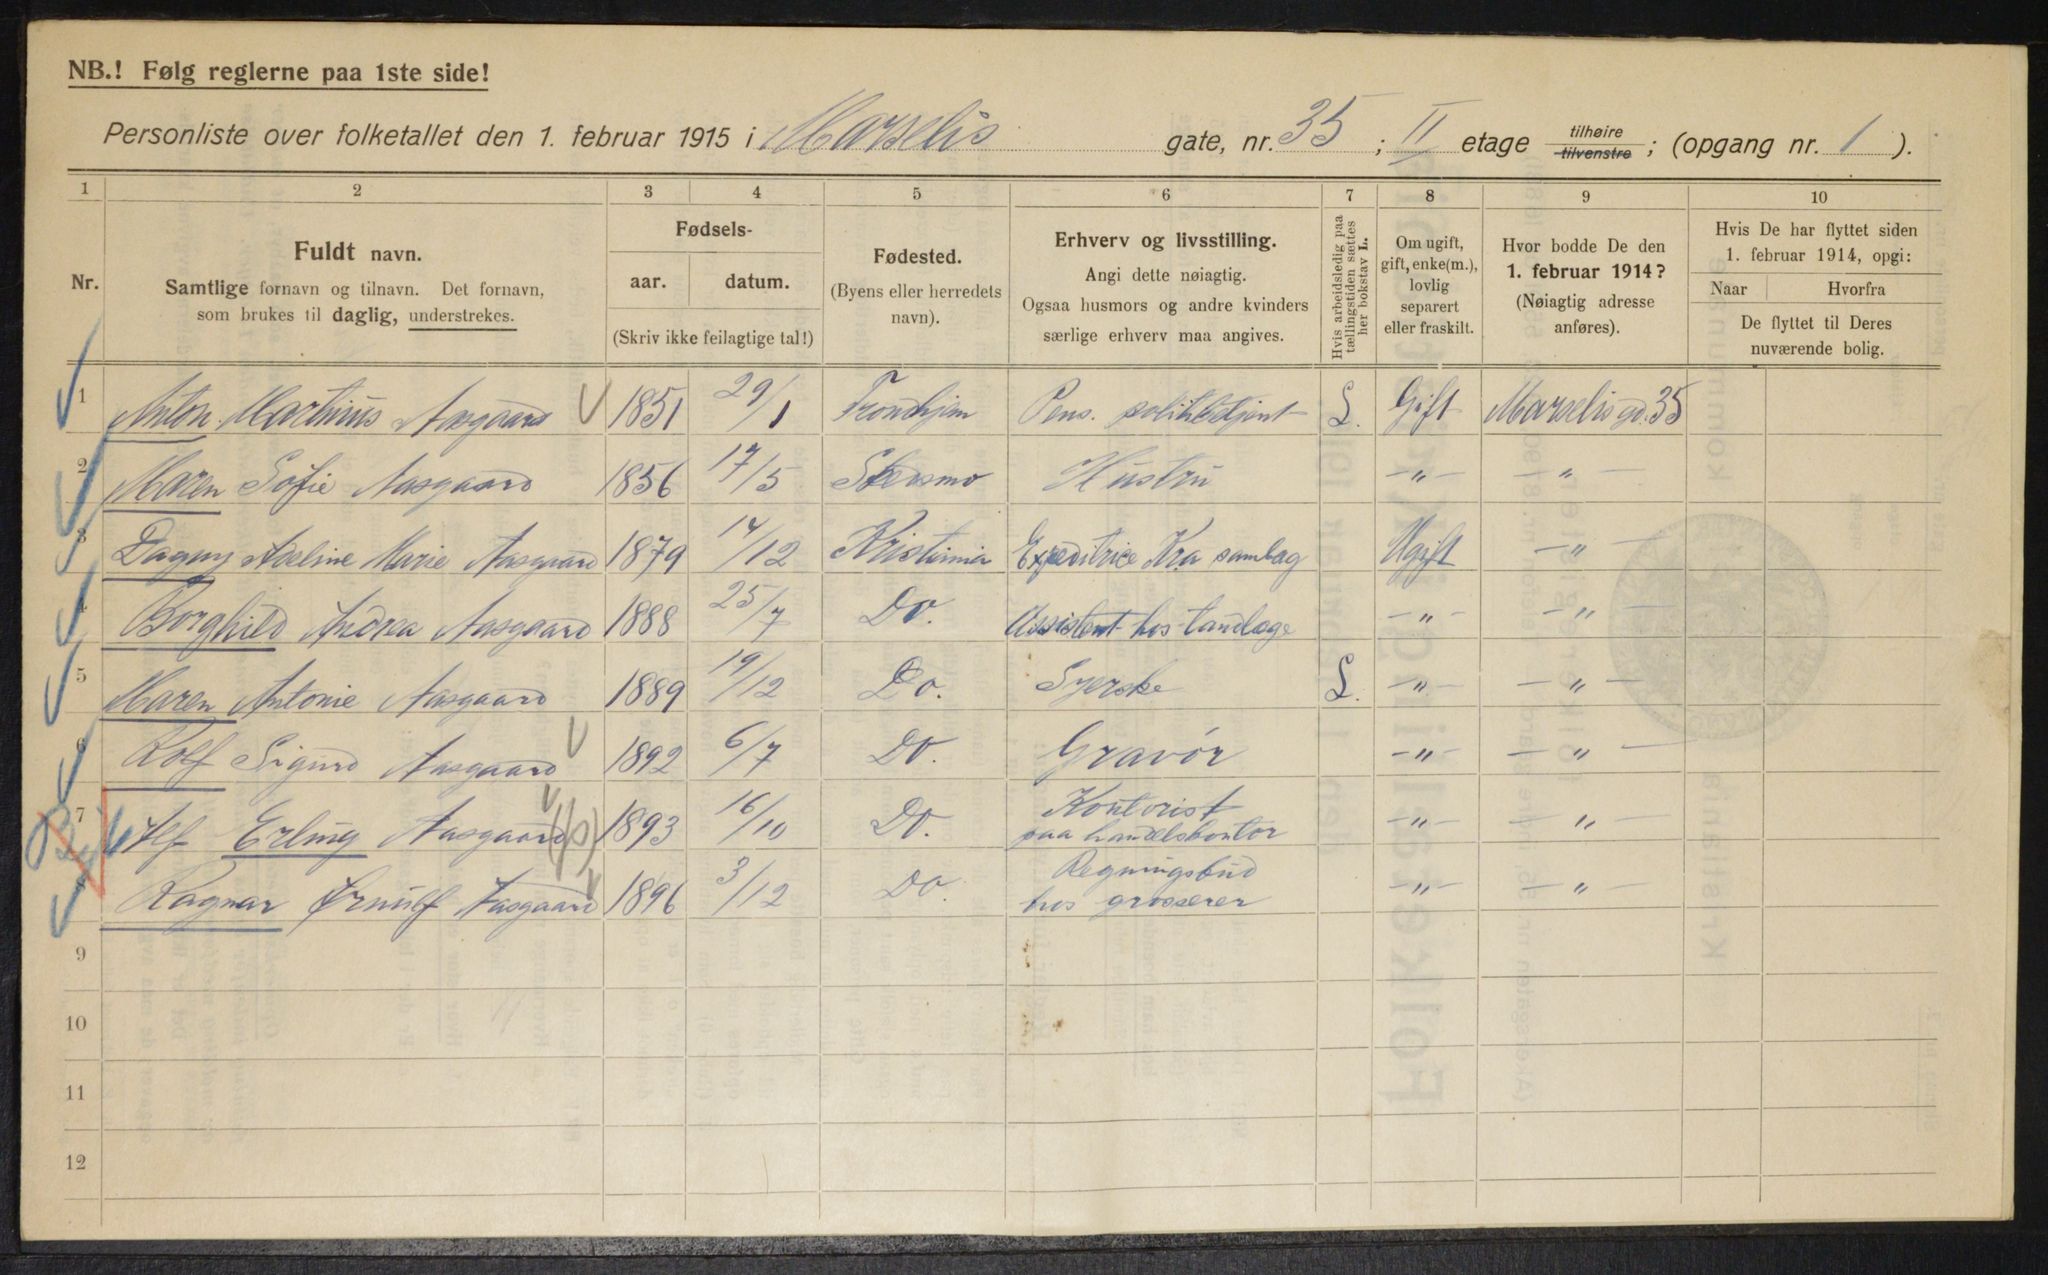 NB.! Følg reglerne paa 1ste side!
Personliste over folketallet den 1. februar 1915 i Marselis gate, nr. 35 ; II etage tilhøire tilvenstre ; (opgang nr. 1 ).
1 2 3 4 5 6 7 8 9 10
Nr.
Fuldt navn.
Samtlige fornavn og tilnavn. Det fornavn,
som brukes til daglig, understrekes.
Fødsels-
aar. datum.
(Skriv ikke feilagtige tal!)
Fødested.
(Byens eller herredets
navn).
Erhverv og livsstilling.
Angi dette nøiagtig.
Ogsaa husmors og andre kvinders
særlige erhverv maa angives.
Hvis arbeidsledig paa
tællingstiden sættes
her bokstav L.
Om ugift,
gift, enke(m.),
lovlig
separert
eller fraskilt.
Hvor bodde De den
1. februar 1914?
(Nøiagtig adresse
anføres).
Hvis De har flyttet siden
1. februar 1914, opgi:
Naar Hvorfra
De flyttet til Deres
nuværende bolig.
1 Anton Martinius Aasgaard 1851 29/1 Trondhjem Pens. politibetjent L. Gift Marselis gd. 35
2 Maren Sofie Aasgaard 1856 17/5 Skedsmo Hustru -"- -"-
3 Dagny Adeline Marie Aasgaard 1879 14/12 Kristiania Expeditrice Kra samlag Ugift -"-
4 Borghild Andrea Aasgaard 1888 25/7 Do. Assistent hos tandlæge -"- -"-
5 Maren Antonie Aasgaard 1889 19/12 Do. Syerske L. -"- -"-
6 Rolf Sigurd Aasgaard 1892 6/7 Do. Gravör -"- -"-
7 Alf Erling Aasgaard 1893 16/10 Do. Kontorist
paa handelskontor -"- -"-
Ragnar Ørnulf Aasgaard 1896 3/12 Do. Regningsbud
hos grosserer -"- -"-
9
10
11
12